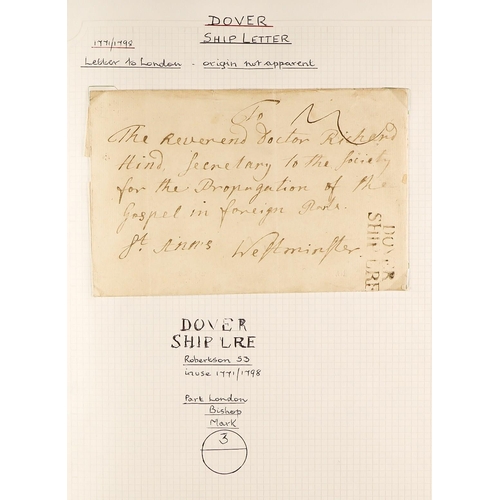 DOVER
SHIP LETTER
1771/1798
Letter to London - origin not apparent
To
The Reverend Doctor Richard
Hind, Secretary to the Society
for the Propagation of the
Gospel in foreign Parts.
St. Anns Westminster.
DOVER
SHIP LRE
DOVER
SHIP LRE
Robertson S3
in use 1771/1798
Part London
Bishop
Mark
3